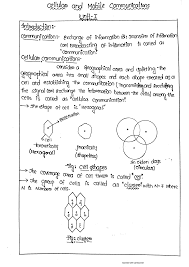 Cellular and Mobile Communications
Unit-I
Introduction:
communication: Exchange of information (or) transmission of information
(or) broadcasting of information is called as
"communication".
Cellular communication:
consider a geographical area and splitting the
geographical area into small shapes and each shape treated as a
cell and establishing the communication (transmitting and receiving
the signal and exchange the information between the areas) among the
cells is called as cellular communication.
* the shape of cell is "hexagonal"
practically
(Hexagonal)
practically
(shapeless)
in olden days
(circular)
Fig: cell shapes
* the coverage area of cell tower is called "cell"
* the group of cells is called as "cluster" with N=7 where
N is Number of cells
Fig: cluster